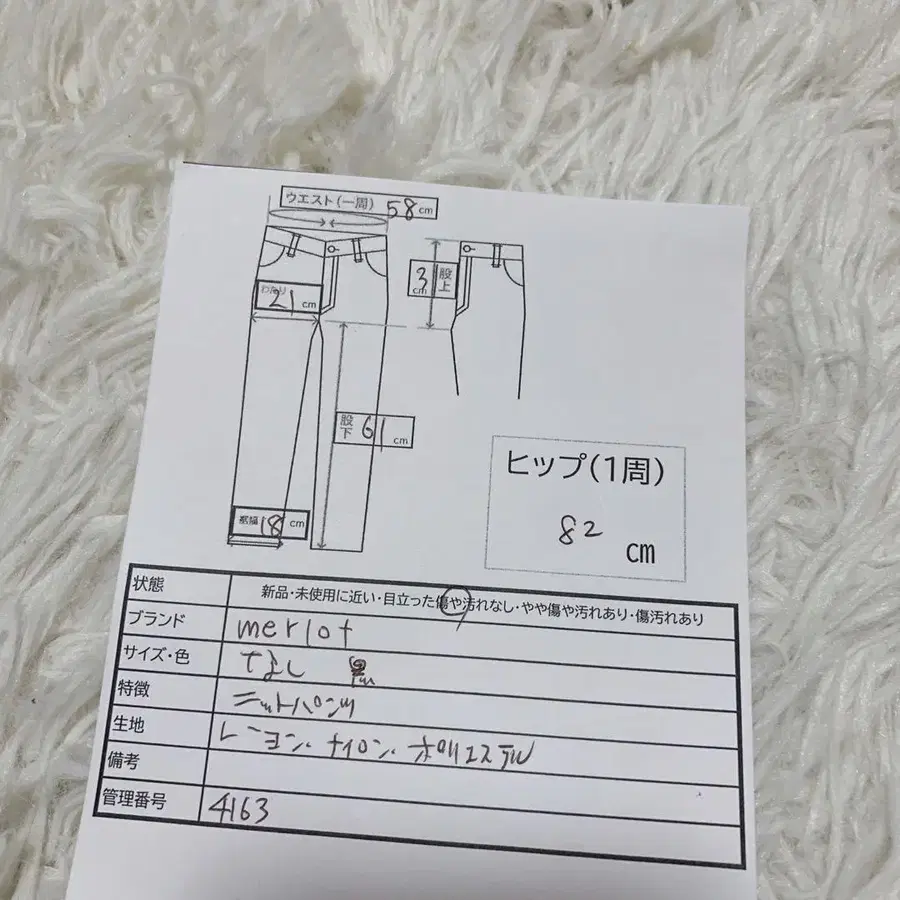 ウエスト(一周) 58 cm
わたり 21 cm
股上 3 cm
股下 61 cm
裾幅 18 cm
ヒップ(1周)
82 cm
状態 新品・未使用に近い・目立った傷や汚れなし・やや傷や汚れあり・傷汚れあり
ブランド merlot
サイズ・色 なし
特徴 ニットパンツ
生地 レーヨン・ナイロン・ポリエステル
備考
管理番号 4163